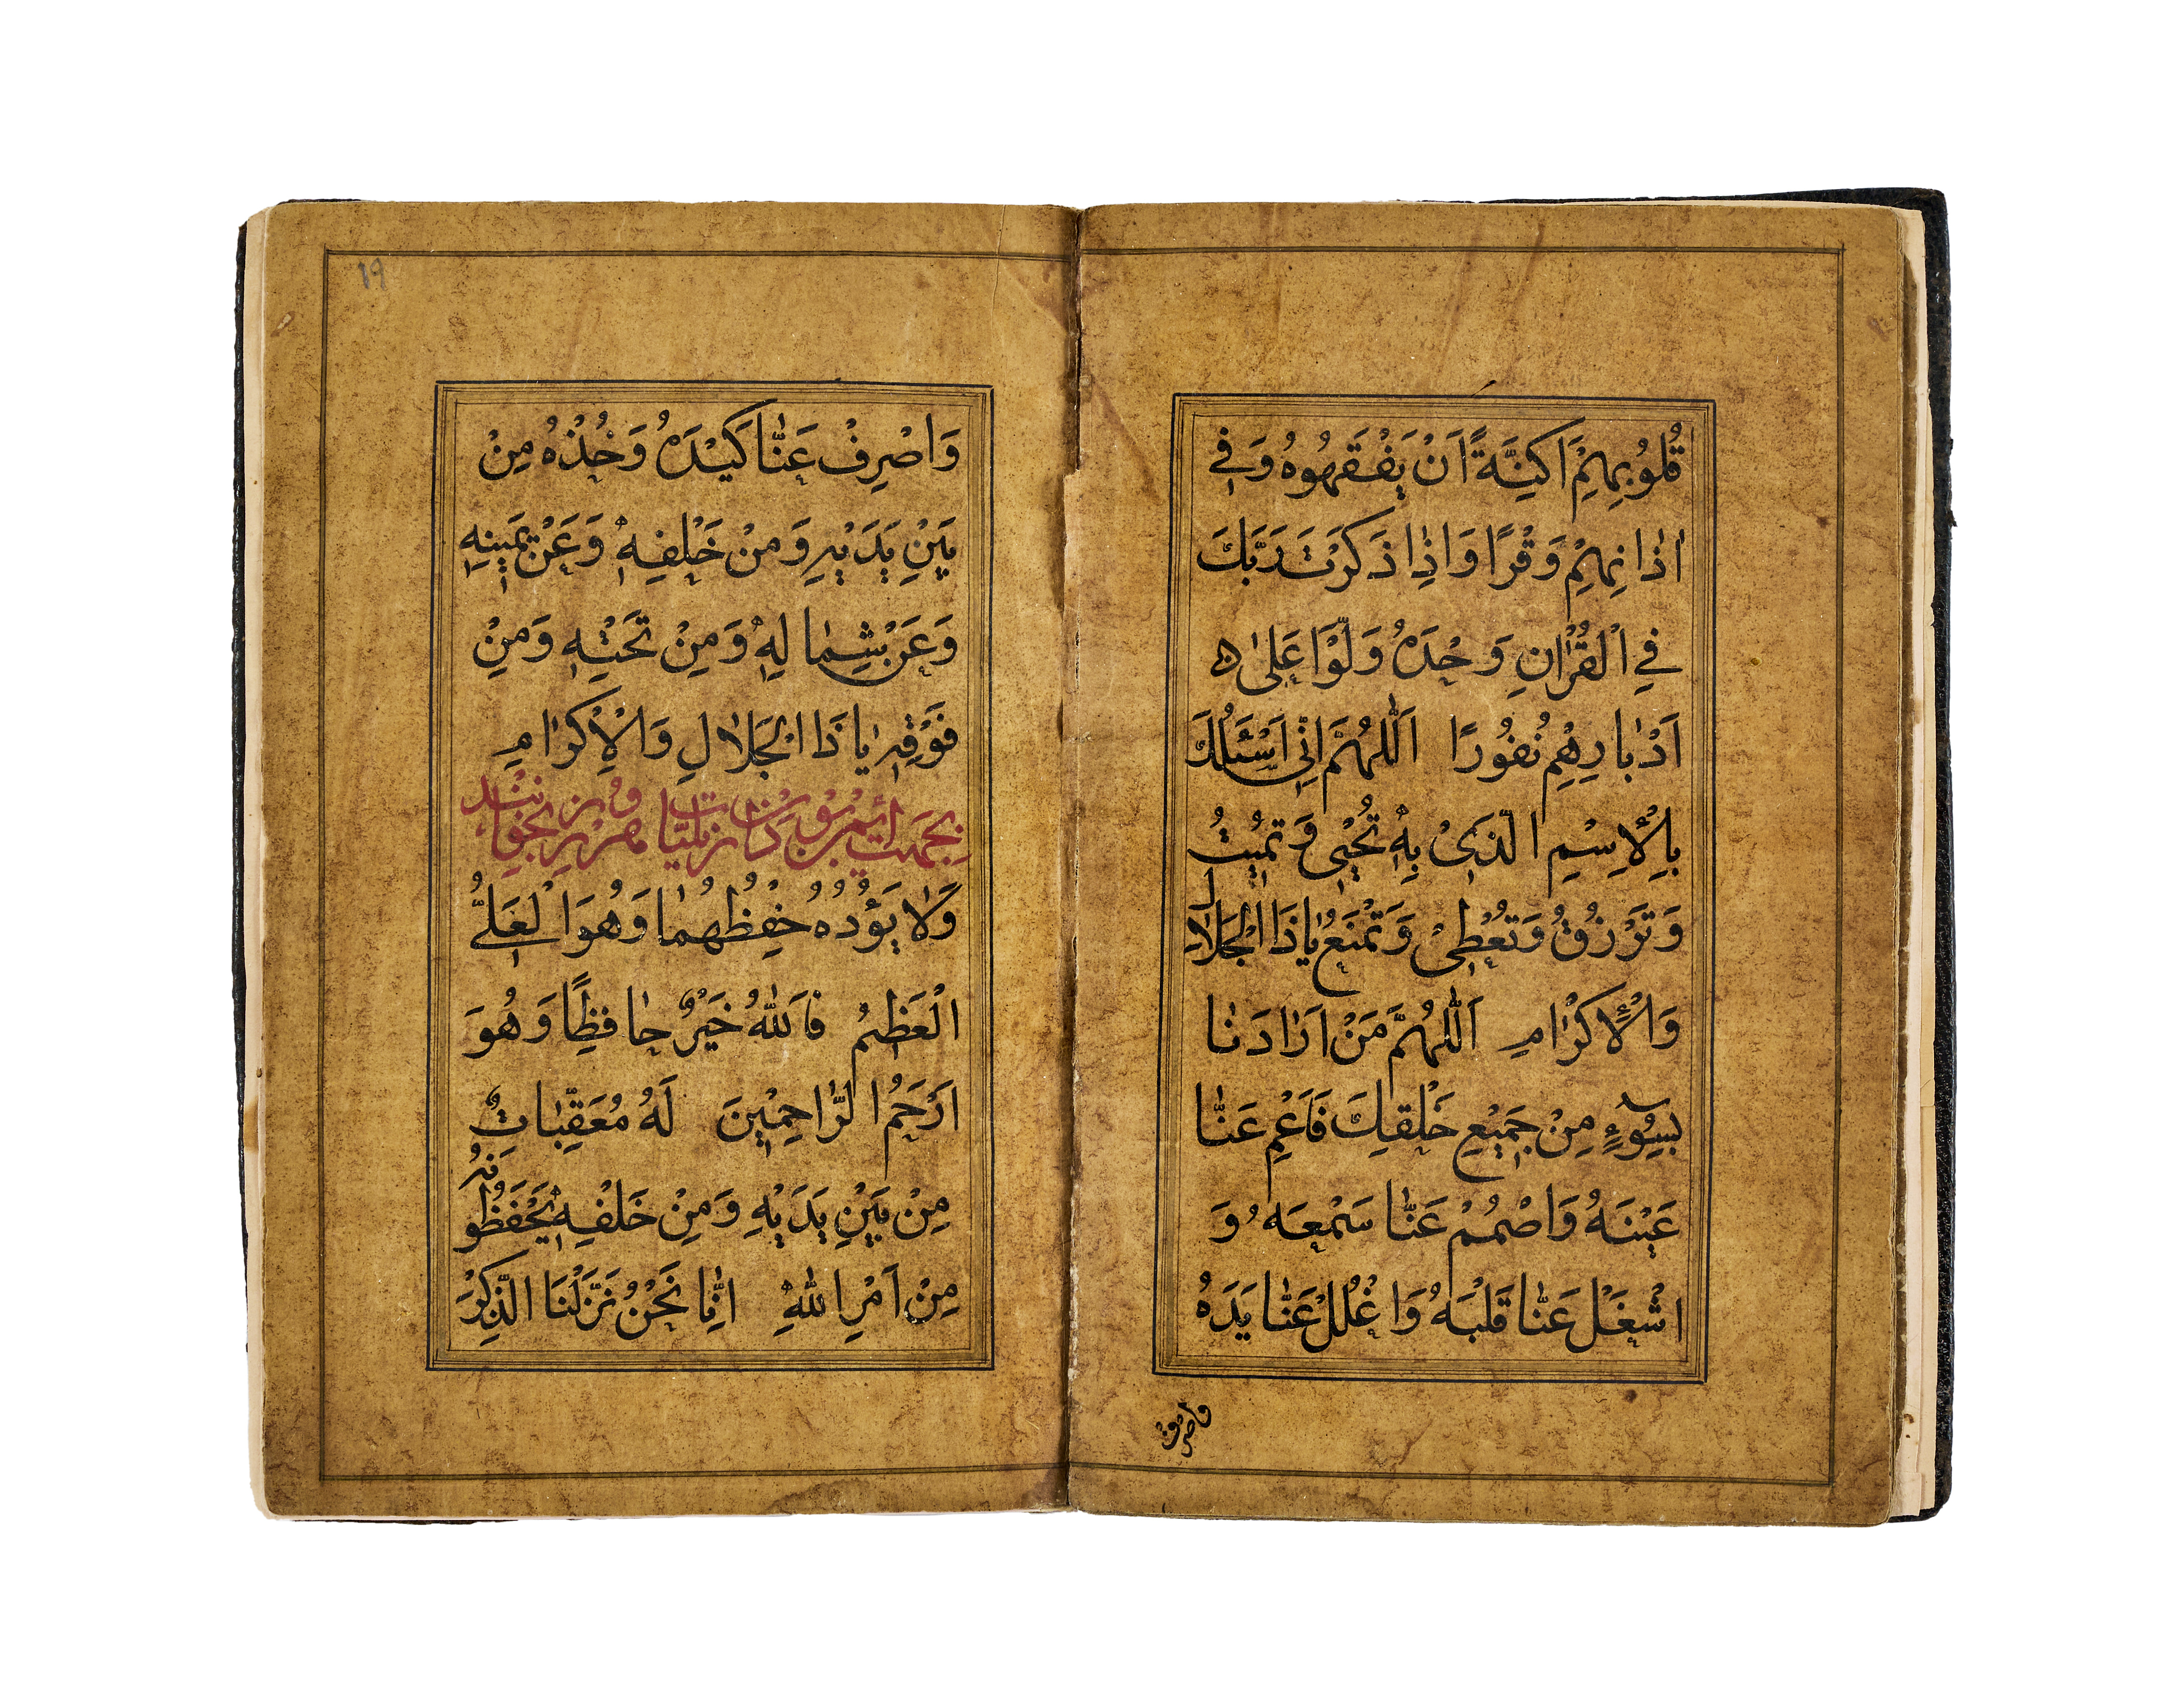 قُلُوبِهِمْ اَكِنَّةً اَنْ يَفْقَهُوهُ وَفِي
اٰذٰانِهِمْ وَقْرًا وَاِذٰا ذَكَرْتَ رَبَّكَ
فِي الْقُرْاٰنِ وَحْدَهُ وَلَّوْا عَلىٰ
اَدْبٰارِهِمْ نُفُورًا اَللّٰهُمَّ اِنّٖي اَسْئَلُكَ
بِالْاِسْمِ الَّذٖى بِهٖ تُحْيٖى وَتُمٖيتُ
وَتَرْزُقُ وَتُعْطٖى وَتَمْنَعُ يٰا ذَا الْجَلٰالِ
وَالْاِكْرٰامِ اَللّٰهُمَّ مَنْ اَرٰادَنٰا
بِسُوٓءٍ مِنْ جَمٖيعِ خَلْقِكَ فَاَعْمِ عَنّٰا
عَيْنَهُ وَاصْمُمْ عَنّٰا سَمْعَهُ وَ
اشْغَلْ عَنّٰا قَلْبَهُ وَاغْلُلْ عَنّٰا يَدَهُ
واصرف
١٩
وَاصْرِفْ عَنّٰا كَيْدَهُ وَخُذْهُ مِنْ
بَيْنِ يَدَيْهِ وَمِنْ خَلْفِهٖ وَعَنْ يَمٖينِهٖ
وَعَنْ شِمٰالِهٖ وَمِنْ تَحْتِهٖ وَمِنْ
فَوْقِهٖ يٰا ذَا الْجَلٰالِ وَالْاِكْرٰامِ
بجهت ايمن بودن از بليات هر روز بخوانند
وَلٰا يَؤُدُهُ حِفْظُهُمٰا وَهُوَ الْعَلِيُّ
الْعَظٖيمُ فَاللّٰهُ خَيْرٌ حٰافِظًا وَهُوَ
اَرْحَمُ الرّٰاحِمٖينَ لَهُ مُعَقِّبٰاتٌ
مِنْ بَيْنِ يَدَيْهِ وَمِنْ خَلْفِهٖ يَحْفَظُونَهُ
مِنْ اَمْرِ اللّٰهِ اِنّٰا نَحْنُ نَزَّلْنَا الذِّكْرَ